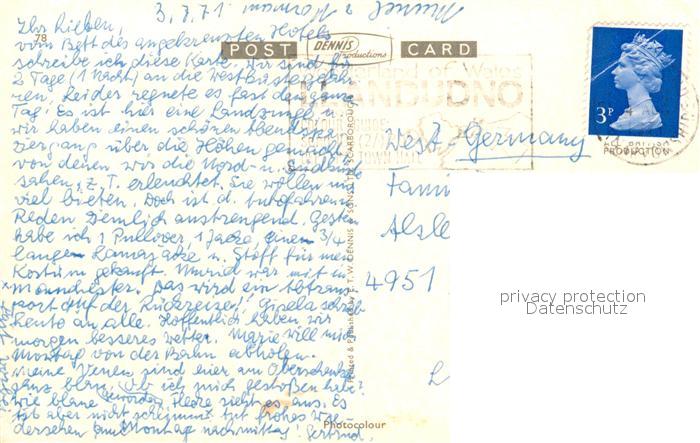 3.8.71 Norman u. Muriel
78
Ihr Lieben,
vom Bett des angekreuzten Hotels
schreibe ich diese Karte. Wir sind für
2 Tage (1 Nacht) an die Westküste gefah-
ren, leider regnete es fast den ganzen
Tag! Es ist hier eine Landzunge u.
wir haben einen schönen Abendspa-
ziergang über die Höhen gemacht
von denen wir die Nord- u. Südküste
sahen, z. T. erleuchtet. Sie wollen mir
viel bieten. Doch ist d. Autofahren u.
Reden ziemlich anstrengend. Gestern
habe ich 1 Pullover, 1 Jacke, einen 3/4
langen Kamajacke u. Stoff für mein
Kostüm gekauft. Muriel war mit in
Manchester. Das wird ein Abtrans-
port auf der Rückreise! Gisela schrieb
heute an alle. Hoffentlich haben wir
morgen besseres Wetter. Marie will mich
Montag von der Bahn abholen.
Meine Venen sind hier am Oberschenkel
ganz blau, ob ich mich gestoßen habe?
wie blaue geworden Flecke sieht es aus. Es
tut aber nicht schlimm. Auf frohes Wie-
dersehen am Montag nachmittag! Gertrud.
POST CARD
DENNIS
Productions
of Wales
LLANDUDNO
TOWN HALL
3P
PRODUCTION
West-Germany
Fami
Alsle
4951
Printed & Published by E. T. W. DENNIS & SONS LTD., SCARBOROUGH
Photocolour
privacy protection
Datenschutz